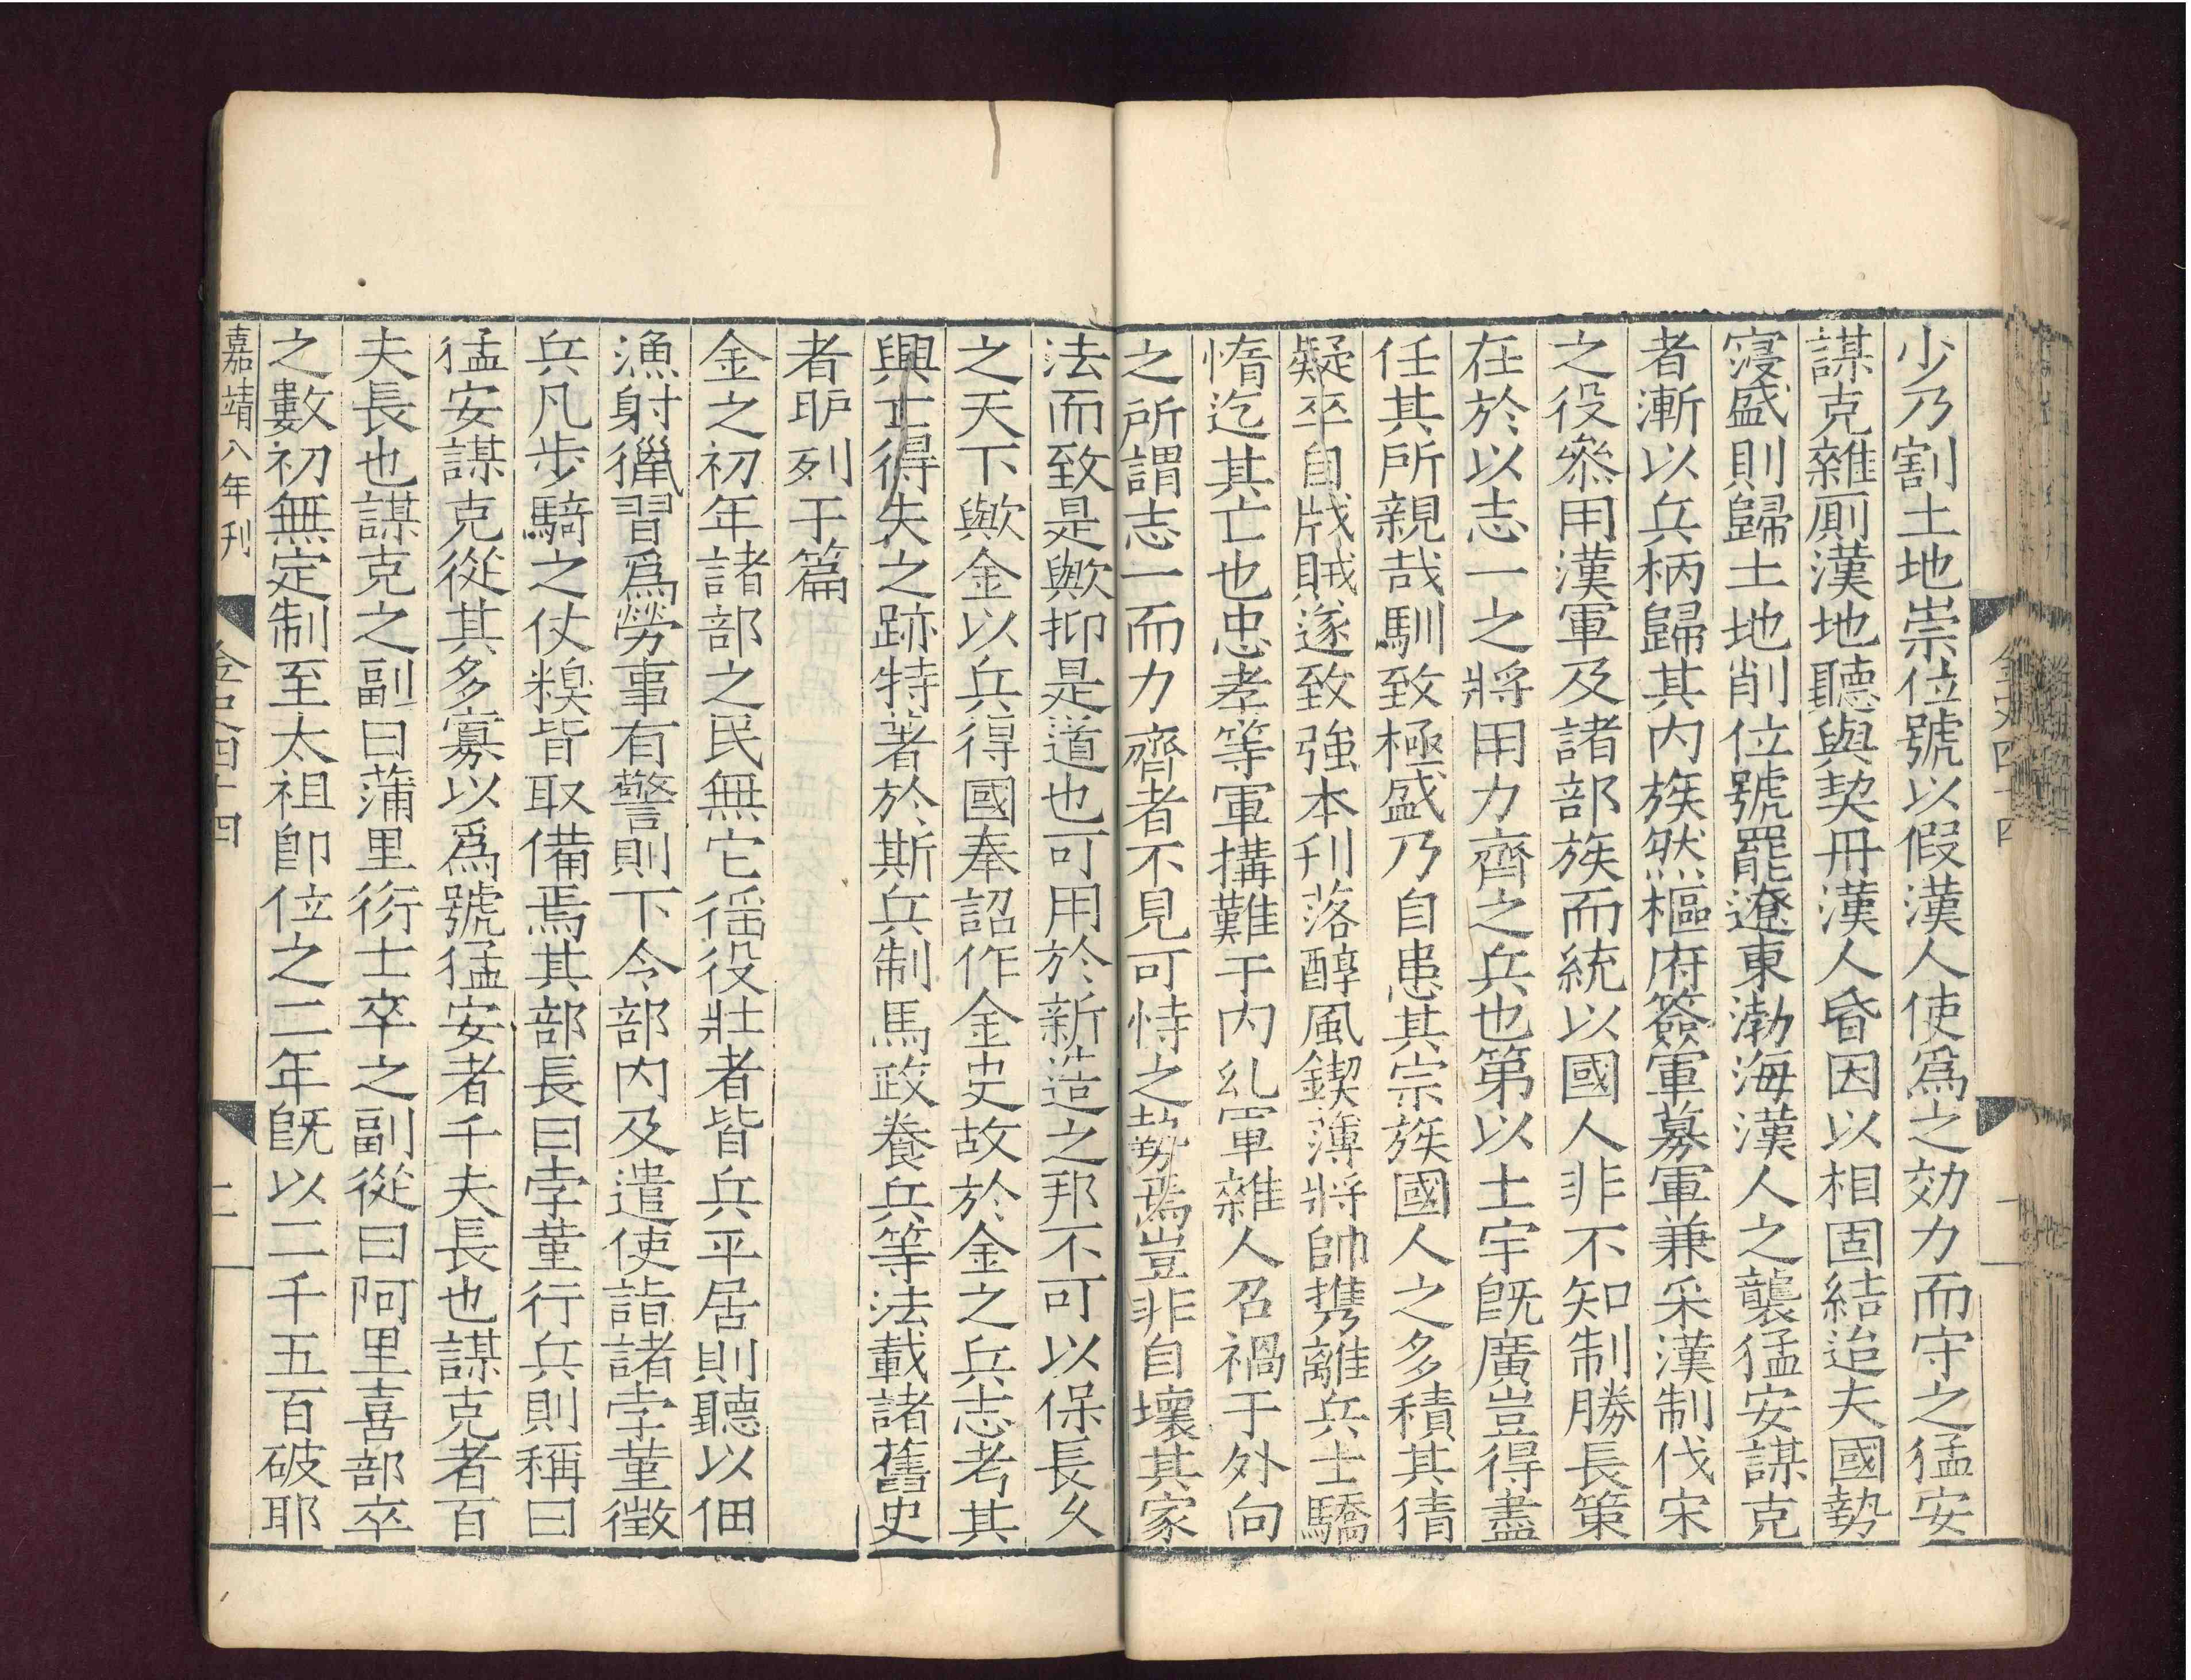 少乃割土地崇位號以假漢人使爲之効力而守之猛安
謀克雜厠漢地聽與契丹漢人昏因以相固結迨夫國勢
寖盛則歸土地削位號罷遼東渤海漢人之襲猛安謀克
者漸以兵柄歸其内族然樞府簽軍募軍兼采漢制伐宋
之役叅用漢軍及諸部族而統以國人非不知制勝長策
在於以志一之將用力齊之兵也第以土宇旣廣豈得盡
任其所親哉馴致極盛乃自患其宗族國人之多積其猜
疑卒自戕賊遂致強本刋落醇風鍥薄將帥攜離兵士驕
惰迄其亡也忠孝等軍搆難于内糺軍雜人召禍于外向
之所謂志一而力齊者不見可恃之勢焉豈非自壞其家
法而致是歟抑是道也可用於新造之邦不可以保長乆
之天下歟金以兵得國奉詔作金史故於金之兵志考其
興亡得失之跡特著於斯兵制馬政養兵等法載諸舊史
者臚列于篇
金之初年諸部之民無它徭役壯者皆兵平居則聽以佃
漁射獵習爲勞事有警則下令部内及遣使詣諸孛菫徵
兵凡步騎之仗糗皆取備焉其部長曰孛菫行兵則稱曰
猛安謀克從其多寡以爲號猛安者千夫長也謀克者百
夫長也謀克之副曰蒲里衍士卒之副從曰阿里喜部卒
之數初無定制至太祖卽位之二年旣以二千五百破耶
嘉靖八年刋
金史四十四
二